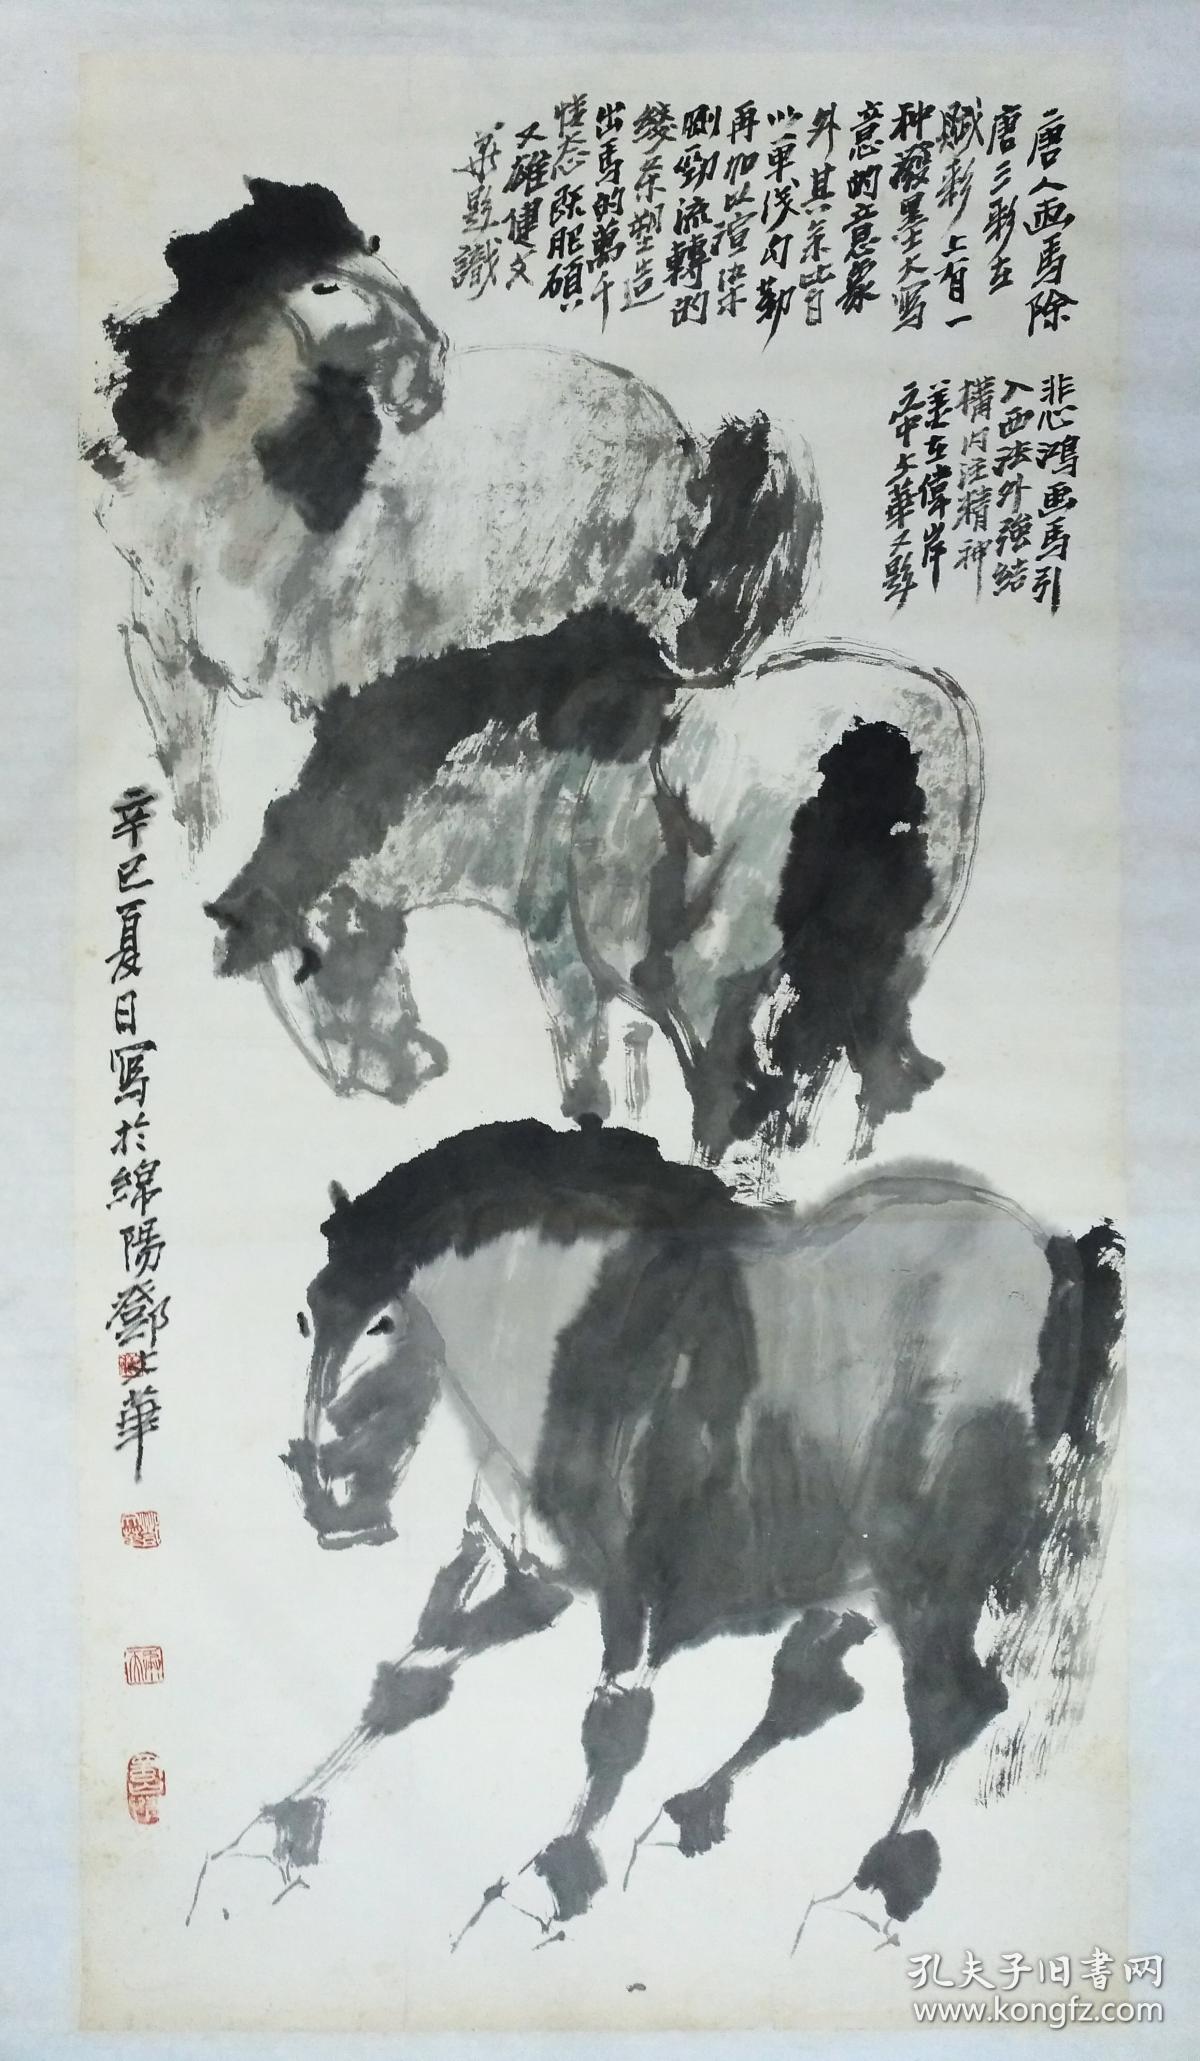 唐人画馬除
唐三彩在
賦彩上有一
种潑墨大写
意的意象
外其余皆
以单线勾勒
再加以渲染
刚勁流轉的
綫条塑造
出馬的萬千
怪态既肥碩
又雄健文
華題識
悲鴻画馬引
入西法外強結
構内注精神
美在偉岸
文華又題
辛巳夏日写於綿陽鄧文華
孔夫子旧書网
www.kongfz.com